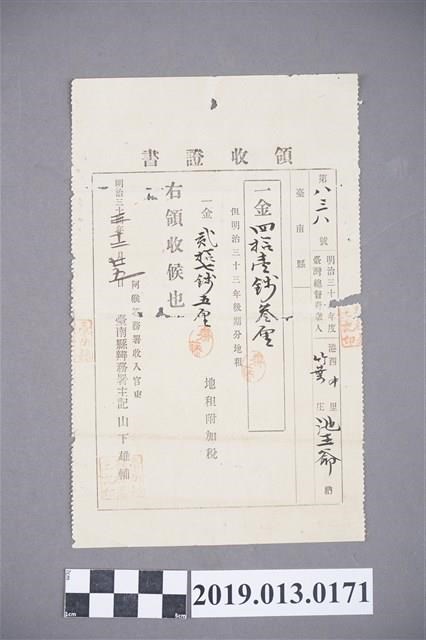 領收證書
第八三八號
明治三十 年度
臺灣總督府 入
港西中里
竹葉庄
池王爺 納
臺南縣
一金四拾壹錢叁厘
但明治三十三年後期分地租
一金貳拾七錢五厘
地租附加稅
右領收候也
明治三十 年 十二月 廿五日
阿緱 務署收入官吏
臺南縣辨務署主記 山下雄輔
1cm
5cm
2019.013.0171